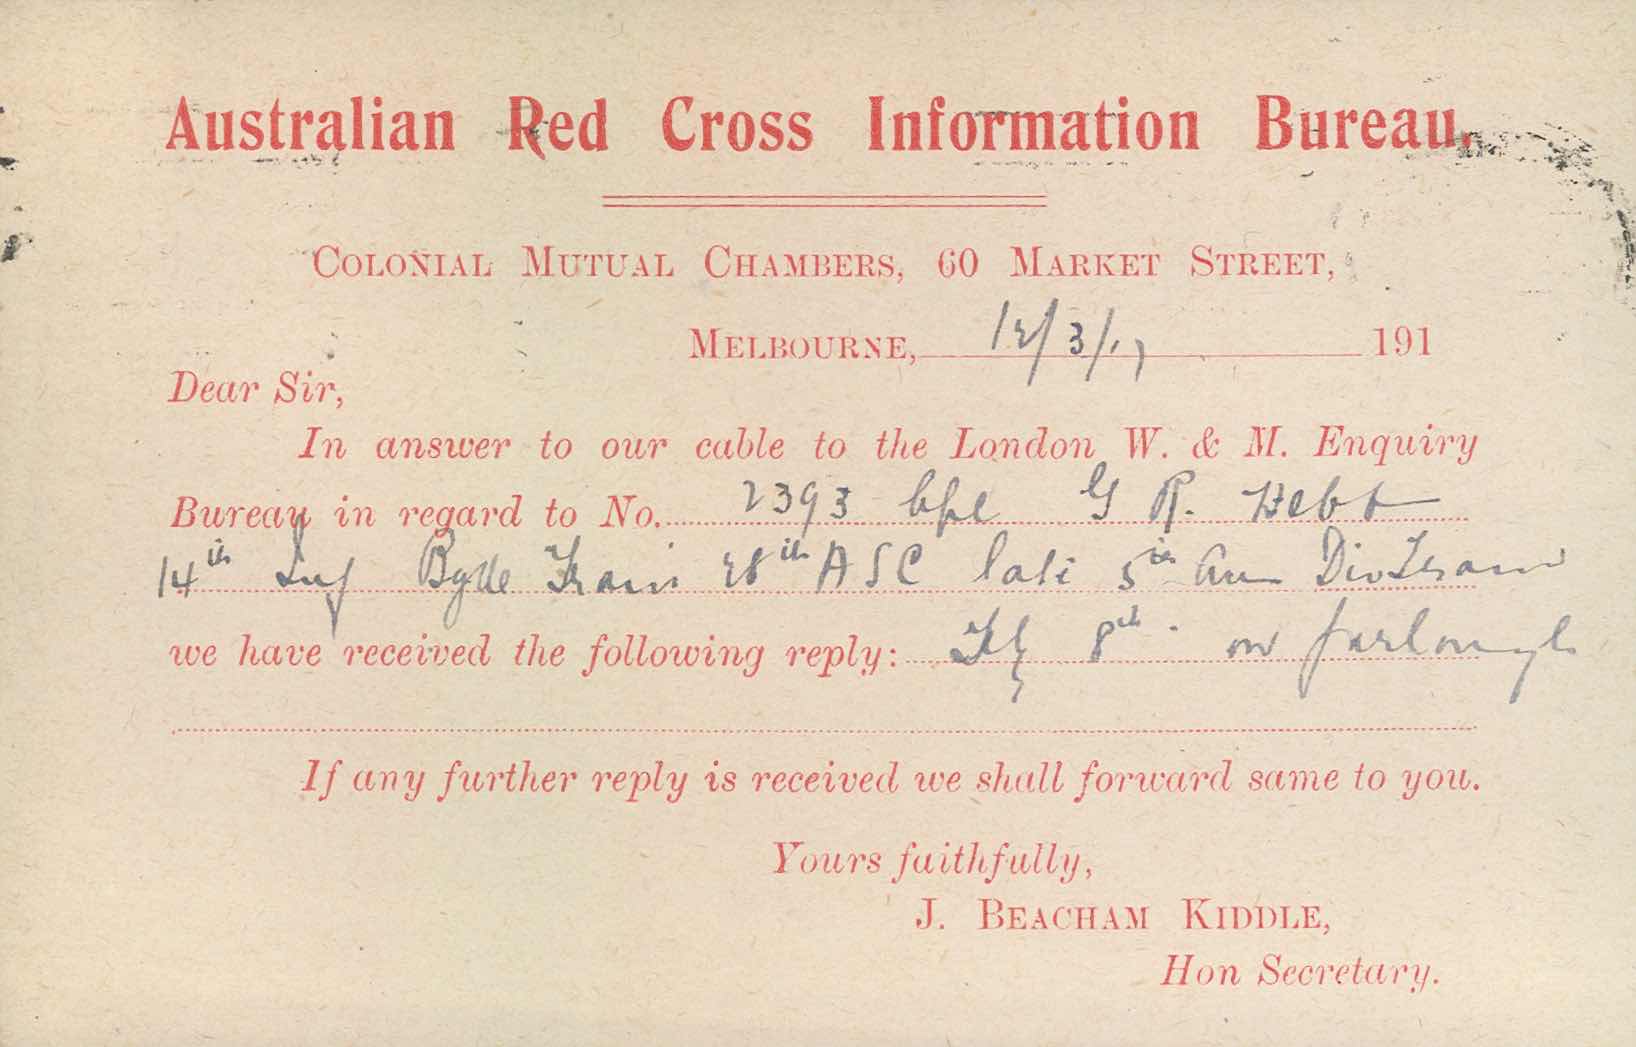 Australian Red Cross Information Bureau.
COLONIAL MUTUAL CHAMBERS, 60 MARKET STREET,
MELBOURNE, 12/3/17 191
Dear Sir,
In answer to our cable to the London W. & M. Enquiry
Bureau in regard to No. 2393 Cpl G R. Hebb
14th Inf Bgde Train 28th ASC late 5th Au Div Train
we have received the following reply: Feb 8th. on furlough
If any further reply is received we shall forward same to you.
Yours faithfully,
J. BEACHAM KIDDLE,
Hon Secretary.